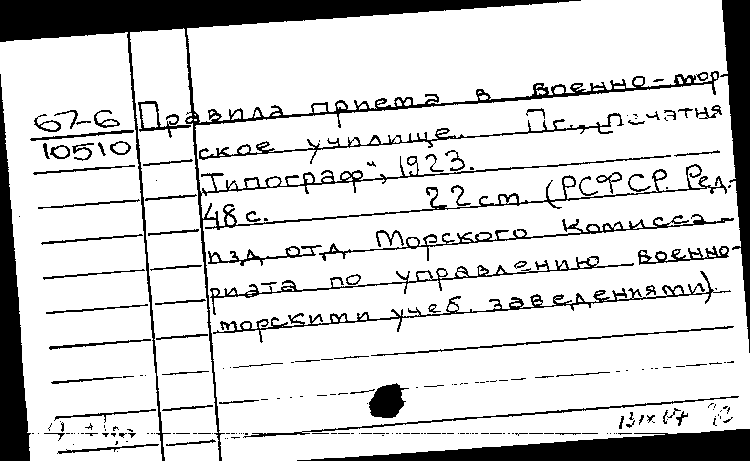 67-6 Правила приема в военно-мор-
10510 ское училище. Пг., "печатня
Типограф", 1923.
48 с. 22 см. (РСФСР. Ред.-
изд. отд. Морского Комисса-
риата по управлению военно-
морскими учеб. заведениями).